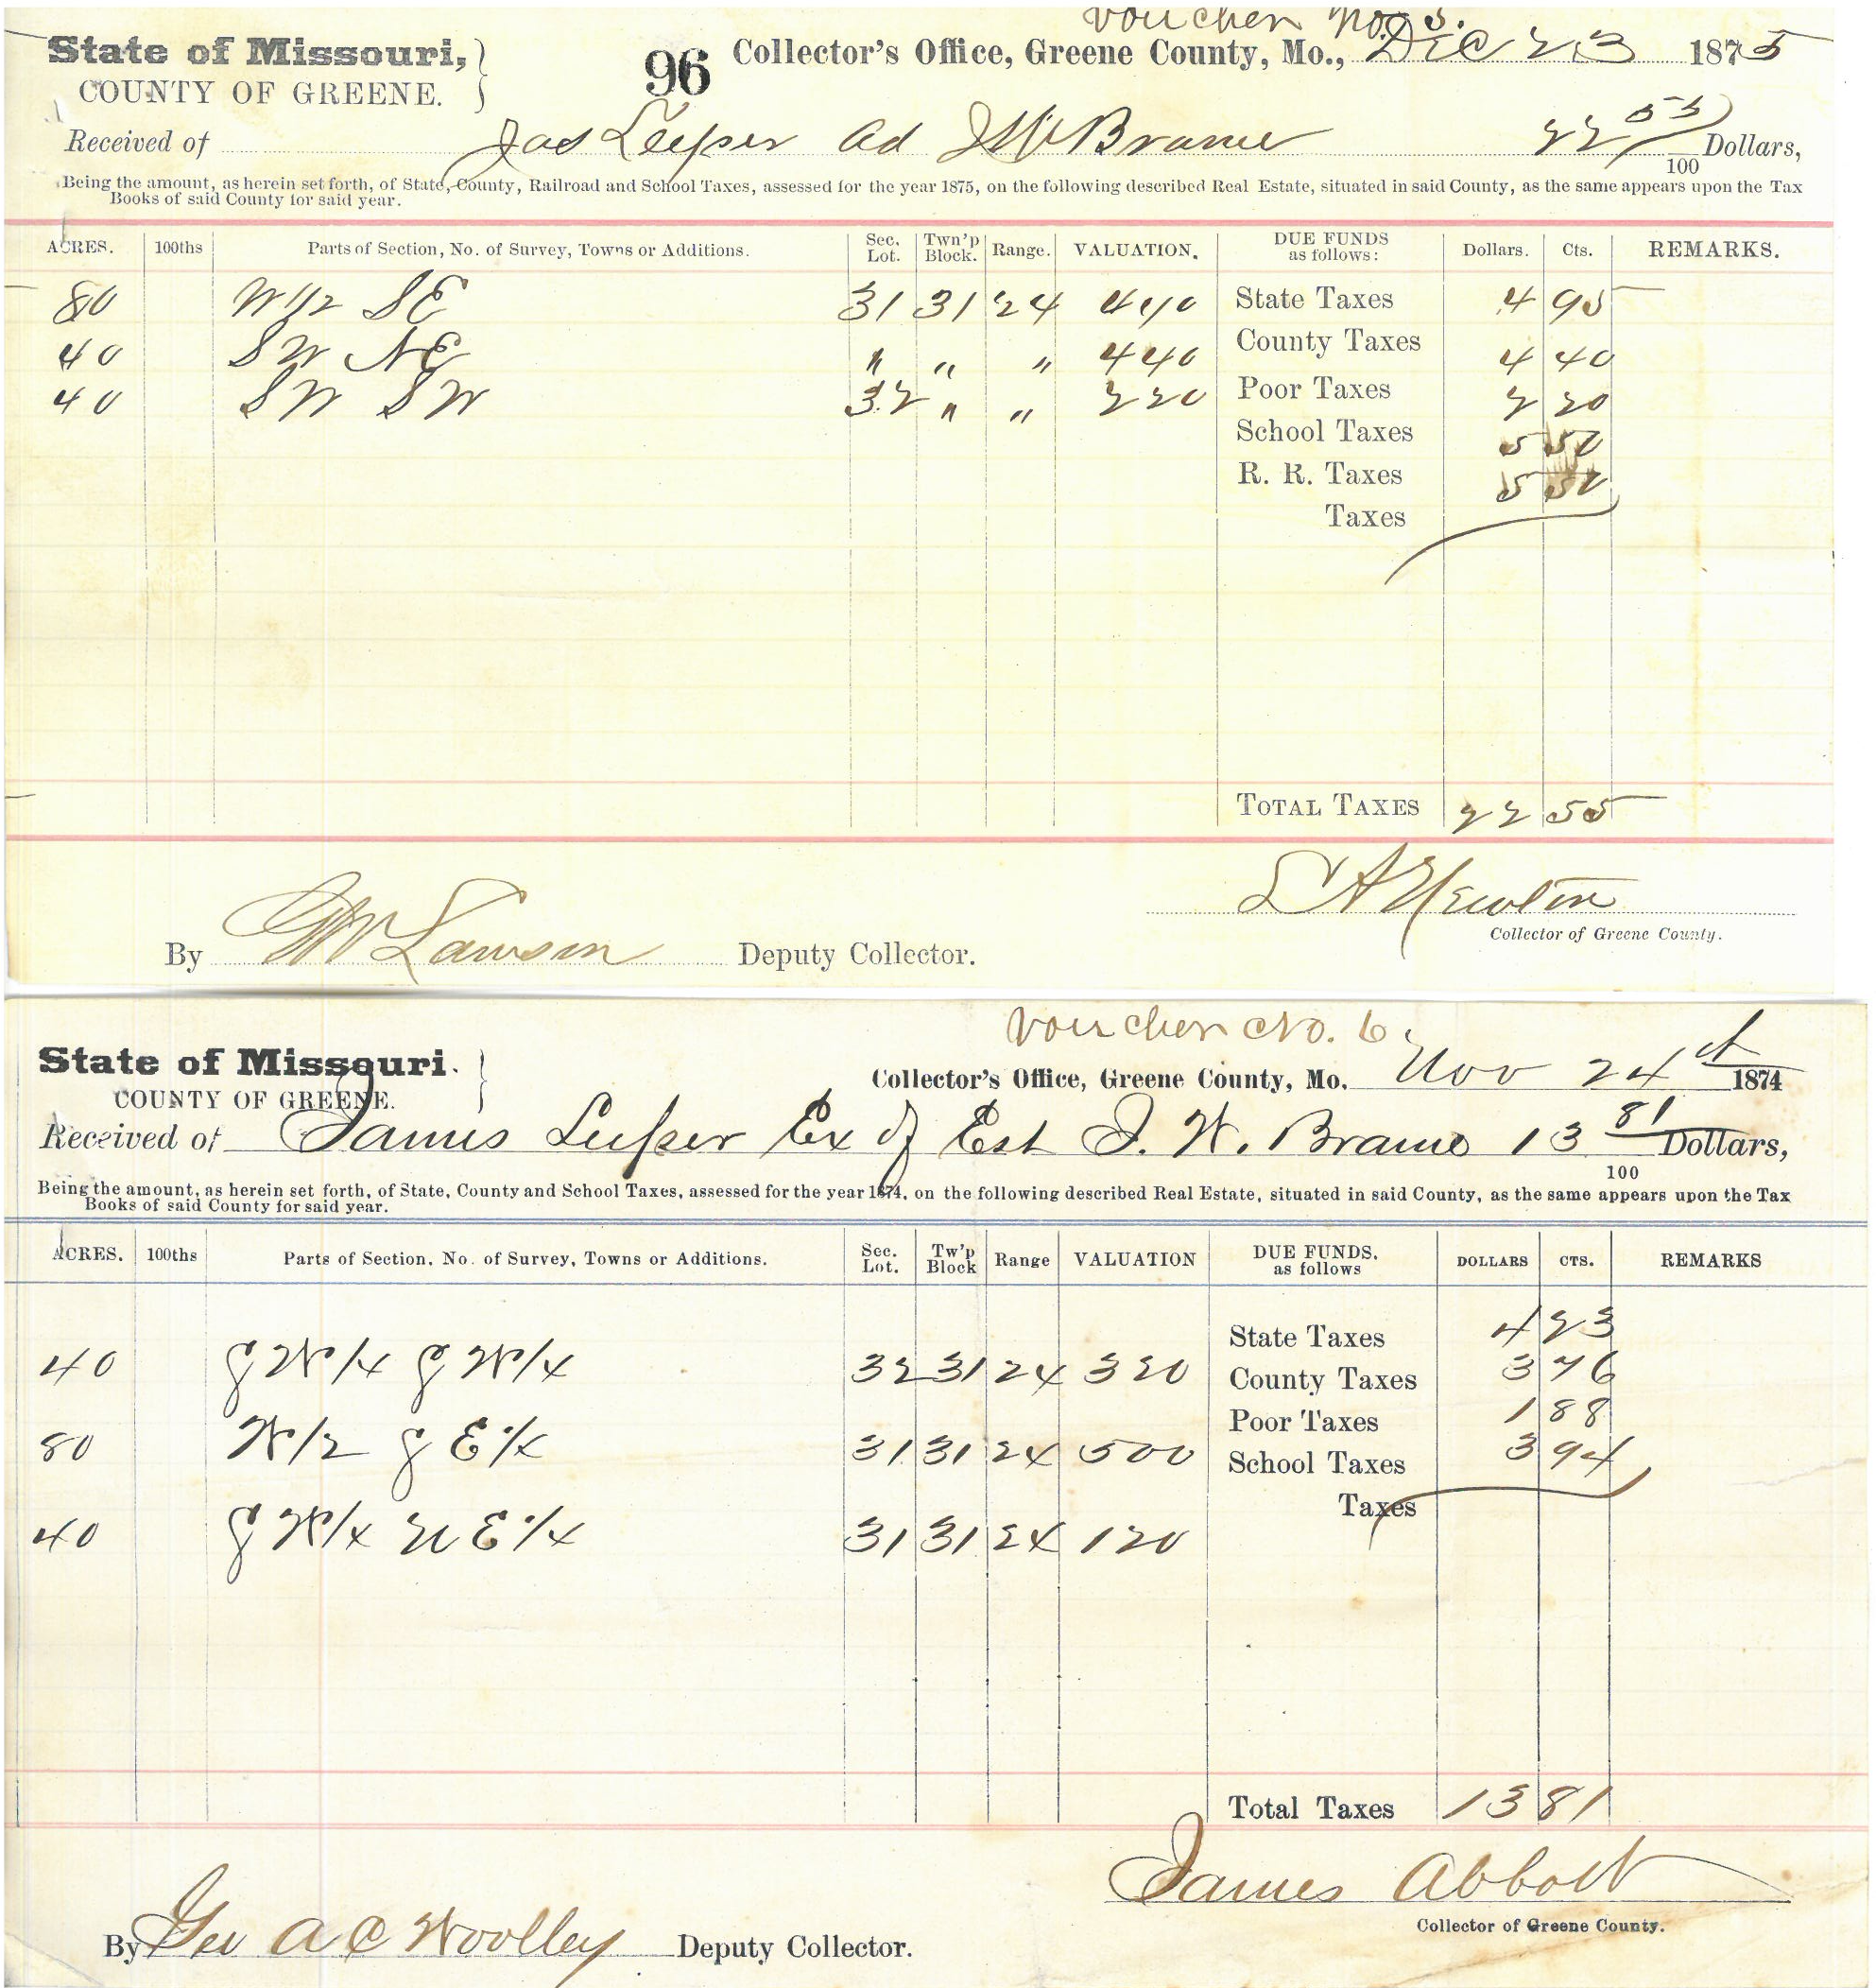 Voucher No. 5.
State of Missouri, 96 Collector's Office, Greene County, Mo., Dec 23 1875
COUNTY OF GREENE.
Received of Jas Leeper Ad J W Brame 22 55/100 Dollars,
Being the amount, as herein set forth, of State, County, Railroad and School Taxes, assessed for the year 1875, on the following described Real Estate, situated in said County, as the same appears upon the Tax
Books of said County for said year.
ACRES. 100ths Parts of Section, No. of Survey, Towns or Additions. Sec. Lot. Twn'p Block. Range. VALUATION. DUE FUNDS as follows: Dollars. Cts. REMARKS.
80 W 1/2 SE 31 31 24 440 State Taxes 4 95
40 SW NE " " " 440 County Taxes 4 40
40 SW SW 32 " " 220 Poor Taxes 2 20
School Taxes 5 50
R. R. Taxes 5 50
Taxes
TOTAL TAXES 22 55
L A Newton
Collector of Greene County.
By G W Lawson Deputy Collector.
Voucher No. 6.
State of Missouri. Collector's Office, Greene County, Mo. Nov 24th 1874
COUNTY OF GREENE.
Received of James Leeper Ex of Est J. W. Brame 13 81/100 Dollars,
Being the amount, as herein set forth, of State, County and School Taxes, assessed for the year 1874, on the following described Real Estate, situated in said County, as the same appears upon the Tax
Books of said County for said year.
ACRES. 100ths Parts of Section, No. of Survey, Towns or Additions. Sec. Lot. Tw'p Block Range VALUATION DUE FUNDS. as follows DOLLARS CTS. REMARKS
State Taxes 4 23
40 S W 1/4 S W 1/4 32 31 24 320 County Taxes 3 76
Poor Taxes 1 88
80 W 1/2 S E 1/4 31 31 24 500 School Taxes 3 94
Taxes
40 S W 1/4 N E 1/4 31 31 24 120
Total Taxes 13 81
James Abbott
Collector of Greene County.
By Geo A C Woolley Deputy Collector.